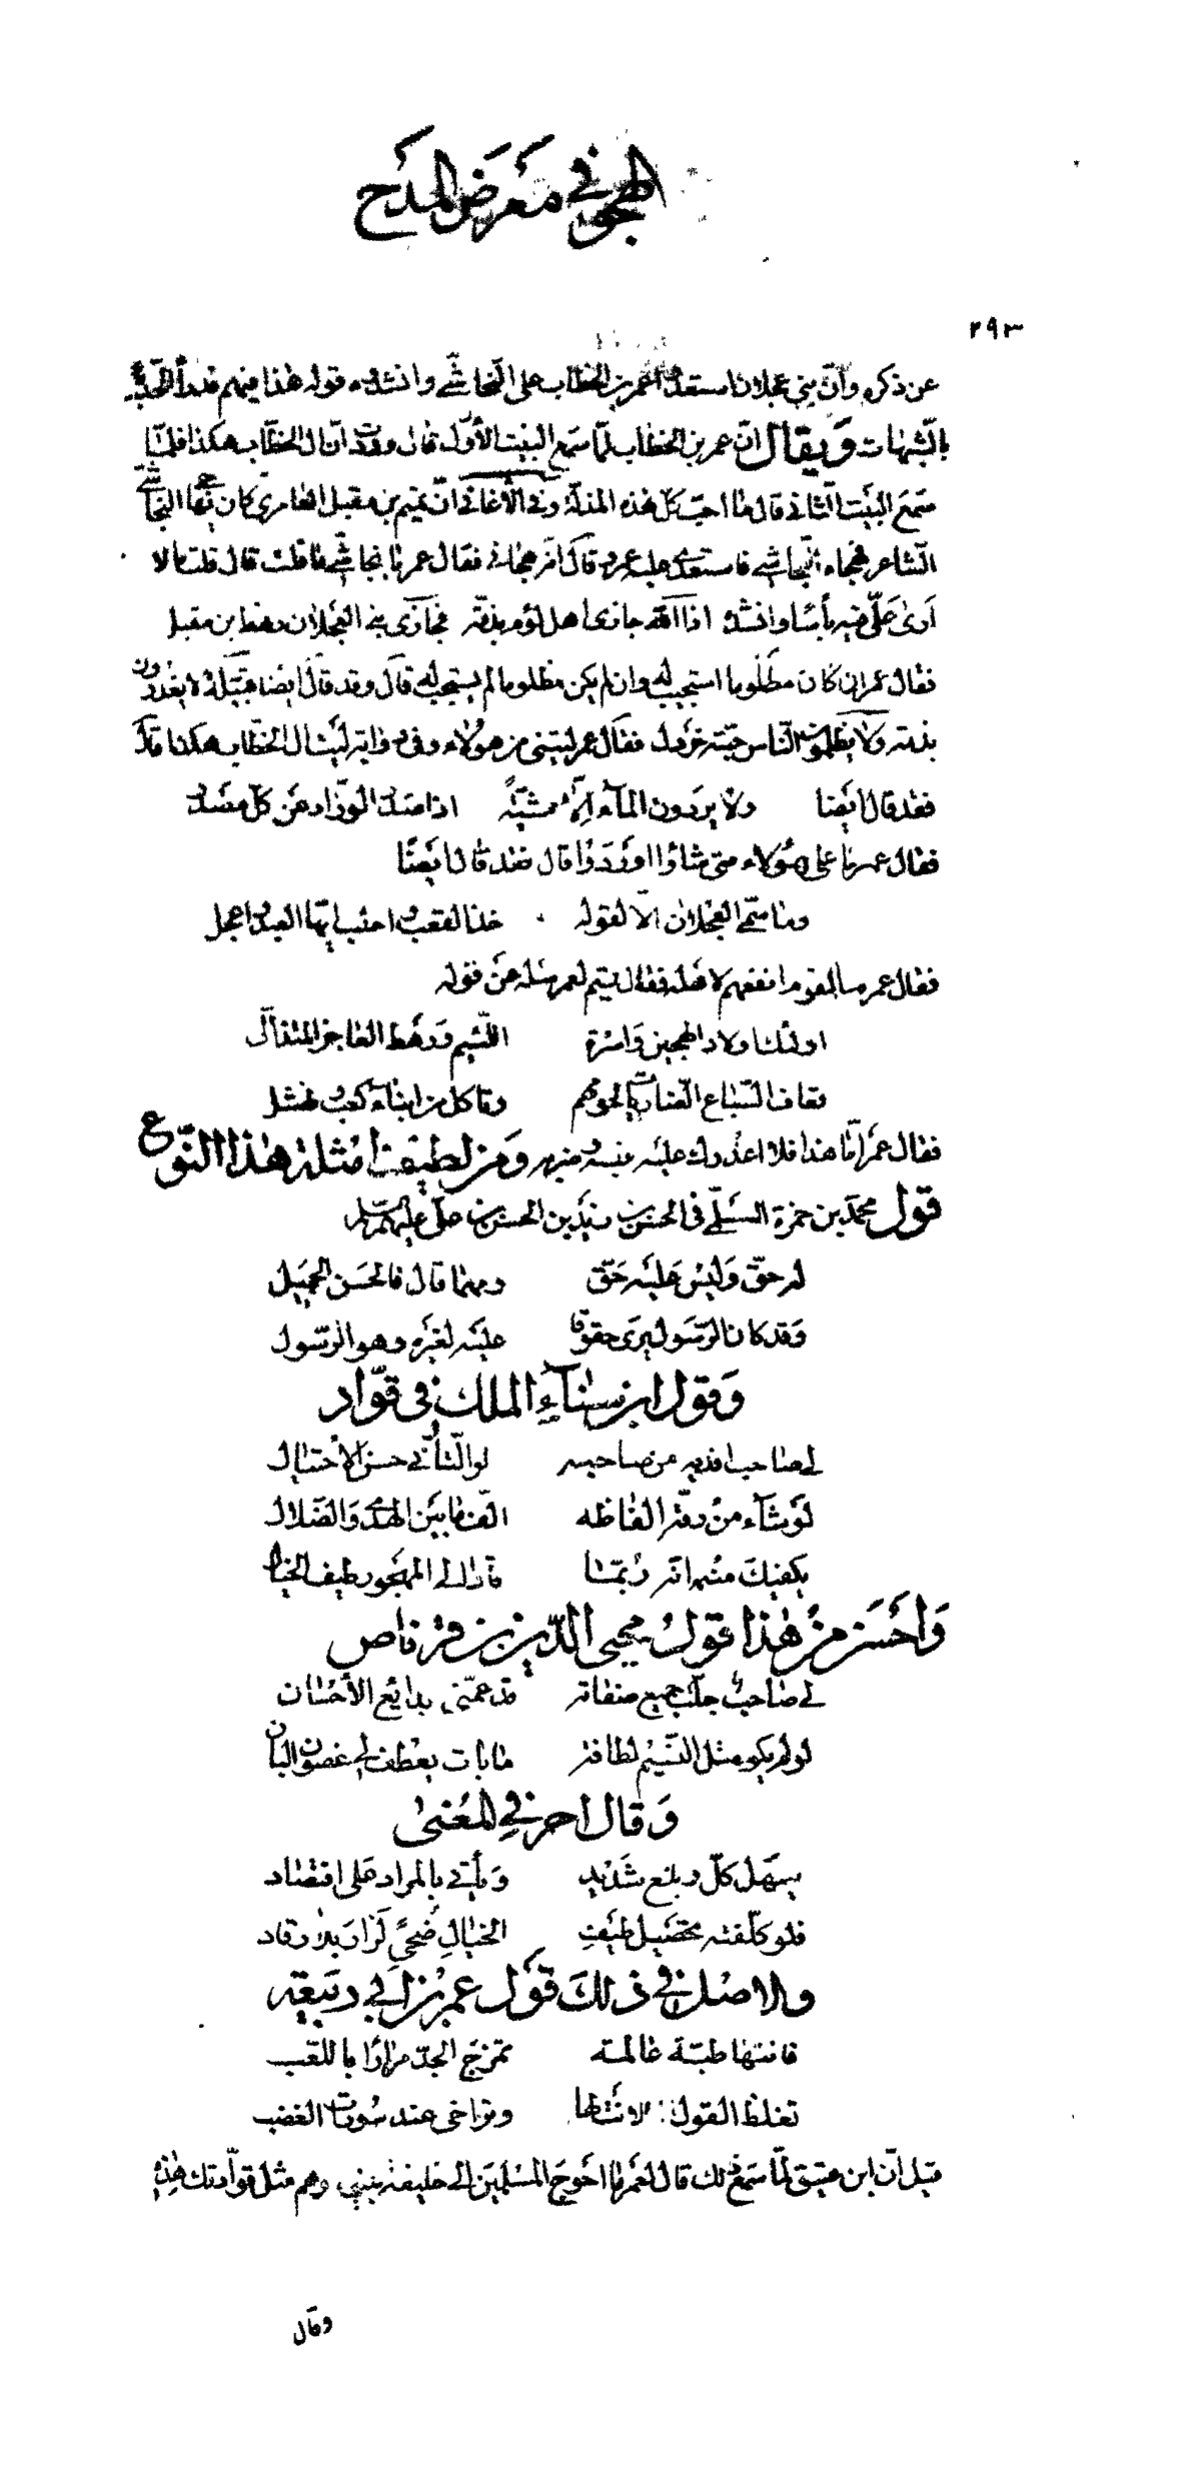 الهجو في معرض المدح
٢٩٣
عن ذكره وانّ بني عجلان استعدوا عمر بن الخطاب على النجاشي وانشدوه قوله هذا فيهم فدرأ الحدّ
بالشبهات ويقال انّ عمر بن الخطاب لمّا سمع البيت الأوّل قال وددت انّ ال الخطّاب هكذا فلمّا
سمع البيت الثاني قال ما احبّ كل هذه المذلّة وفي الأغاني انّ تميم بن مقبل العامري كان النجاشي
الشاعر فهجاه النجاشي فاستعدى عليه عمر وقال انّه هجاني فقال عمر يا نجاشي ما قلت قال قلت ما لا
ارى عليّ فيه بأسا وانشد اذا الله جازى اهل لؤم بذمّة فجازى بني العجلان رهط ابن مقبل
فقال عمر ان كان مظلوما استجيب له وان لم يكن مظلوما لم يستجب له قال وقد قال ايضا قبيّلة لا يغدرون
بذمّة ولا يظلمون الناس حبّة خردل فقال عمر ليتني من هؤلاء وفي رواية ليت ال الخطّاب هكذا قال
فقد قال ايضا ولا يردون الماء الّا عشيّة اذا صدر الورّاد عن كلّ منهل
فقال عمر ما على هؤلاء متى شاؤا اوردوا قال فقد قال ايضا
وما سمّي العجلان الّا لقوله خذ القعب واحلب ايّها العبد واعجل
فقال عمر سيد القوم انفعهم لاهله فقال تميم لعمر سله عن قوله
اولئك اولاد الهجين واسرة اللئيم ورهط العاجز المتذلّل
تعاف السباع الضاريات لحومهم وتاكل من ابناء كعب ونهشل
فقال عمر امّا هذا فلا اعذرك عليه فيه ومن لطيف امثلة هذا النّوع
قول محمّد بن حمزة السلمي في الحسن بن زيد بن الحسن بن عليّ عليهم السلام
له حقّ وليس عليه حقّ ومهما قال فالحسن الجميل
وقد كان الرسول يرى حقوقا عليه لغيره وهو الرسول
وقول ابن سناء الملك في قوّاد
لي صاحب افديه من صاحب حلو التأنّي حسن الاحتيال
لو شاء من رقّة الفاظه الّف ما بين الهدى والضلال
يكفيك منه انّه ربّما قاد الى المهجور طيف الخيال
واحسن من هذا قول محيي الدين بن قرناص
لي صاحب جلّت جميع صفاته قد عمّني ببدائع الأحسان
لو لم يكن مثل النسيم لطافة ما بات يعطف لي غصون البان
وقال اخر في المعنى
يسهّل كلّ ممتنع شديد ويأتي بالمراد على اقتصاد
فلو كلّفته تحصيل طيف الخيال ضحىً لزار بلا رقاد
والاصل في ذلك قول عمر بن ابي ربيعة
فاتتها طبّة عالمة تمزج الجدّ مرارا باللعب
تغلظ القول اذا لانت لها وتراخى عند سورات الغضب
قيل انّ ابن عتيق لمّا سمع ذلك قال لعمر ما احوج المسلمين الى خليفة مثل قوّادتك هذه
وقال